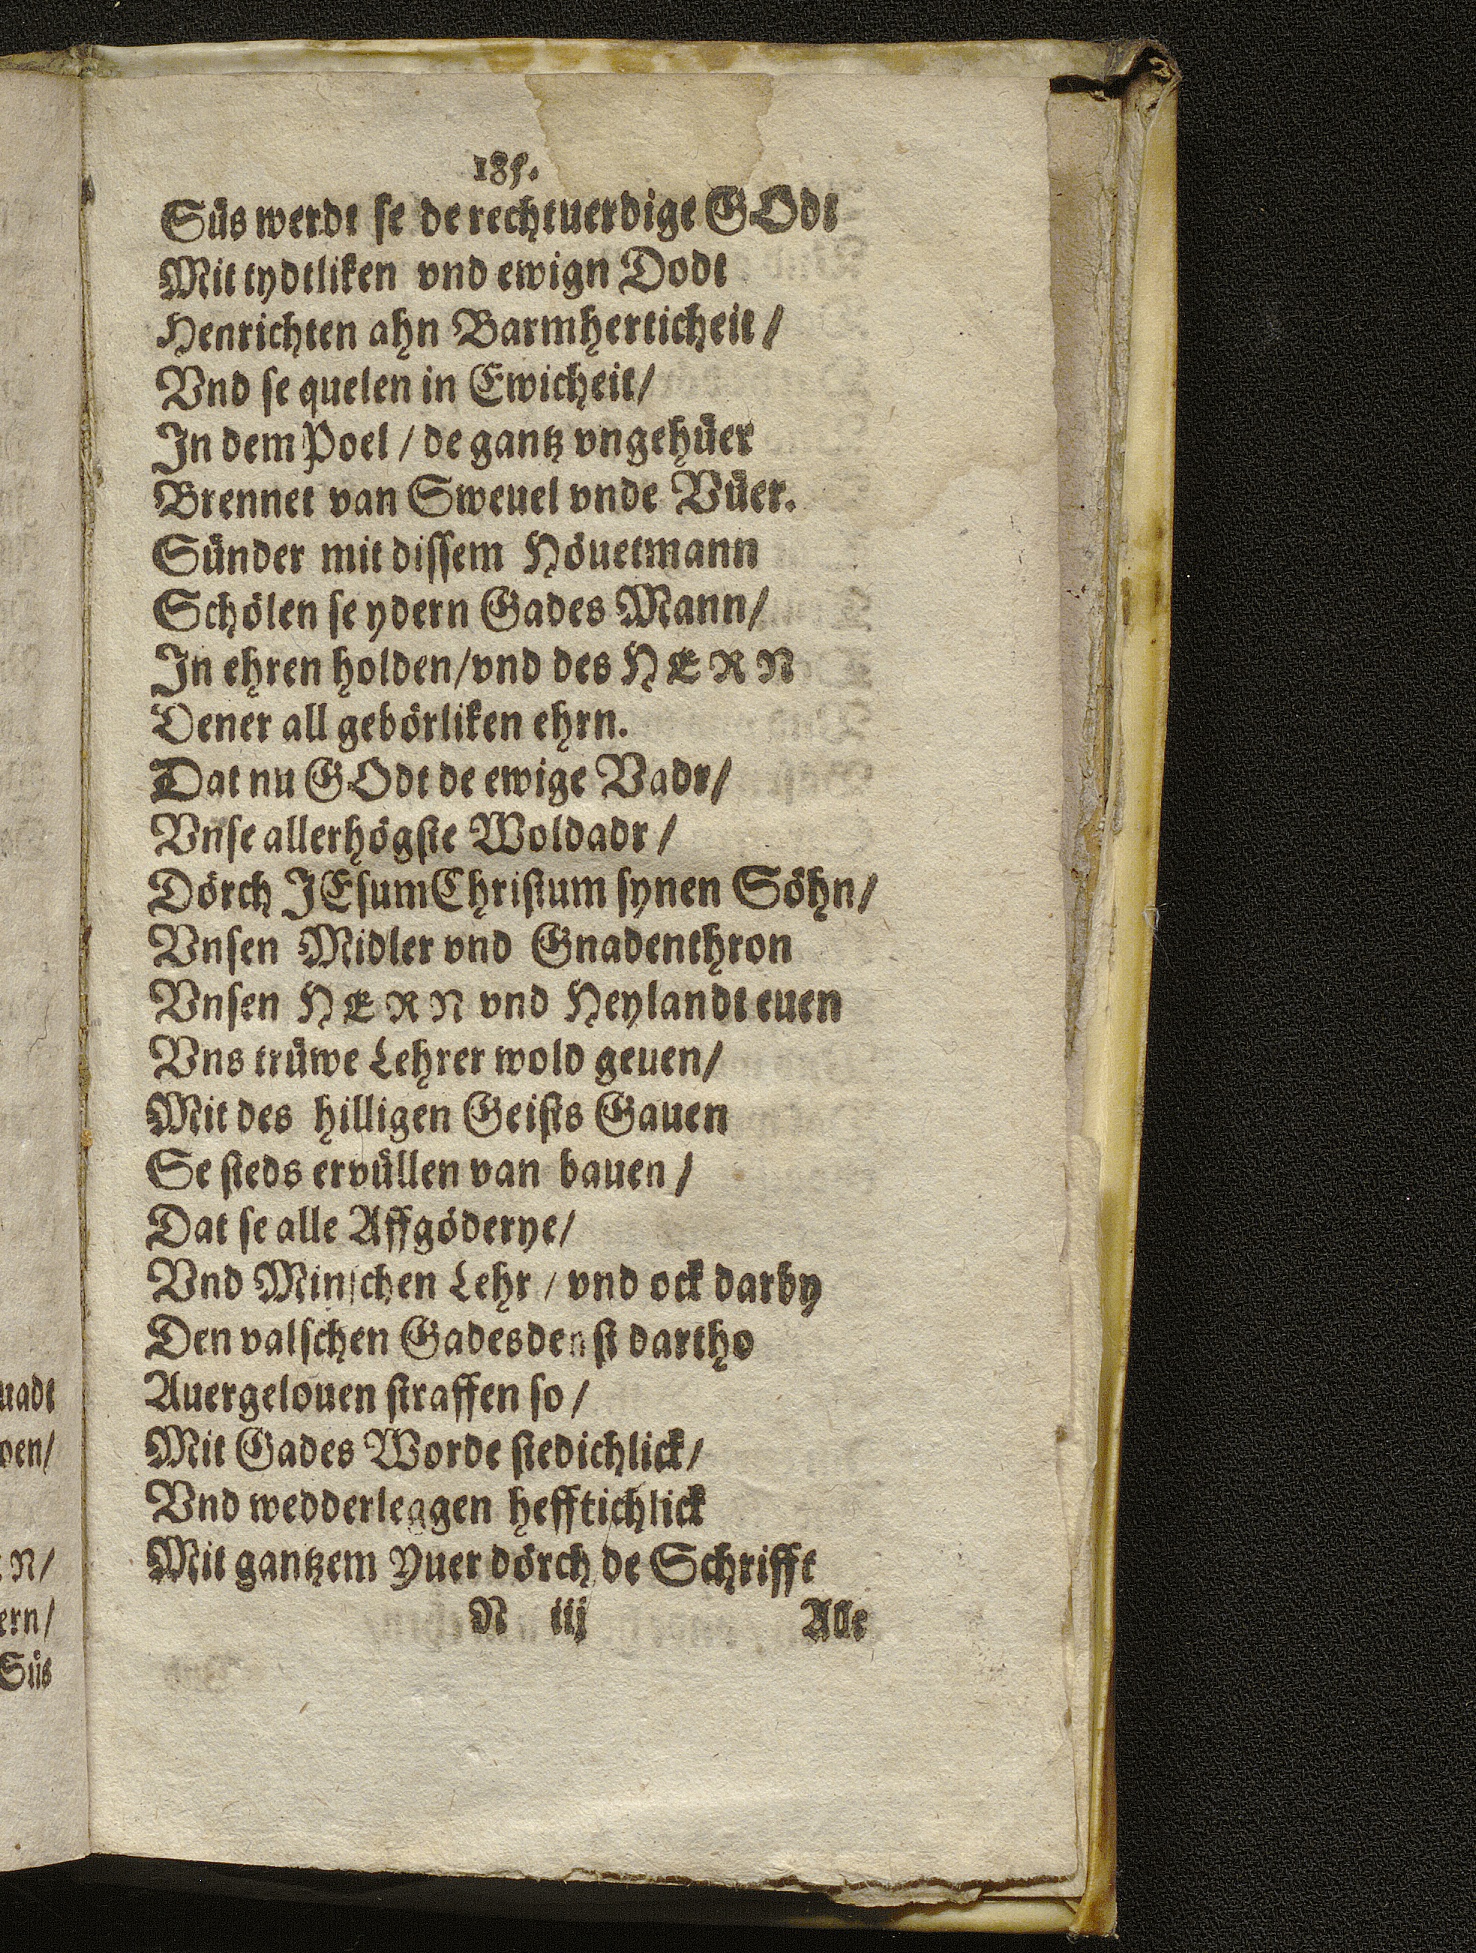 185.
Süs werdt se de rechtuerdige GOdt
Mit tydtliken vnd ewign Dodt
Henrichten ahn Barmherticheit /
Vnd se quelen in Ewicheit /
In dem Poel / de gantz vngehüer
Brennet van Sweuel vnde Vüer.
Sünder mit dissem Höuetmann
Schölen se ydern Gades Mann /
In ehren holden / vnd des HERN
Dener all gebörliken ehrn.
Dat nu GOdt de ewige Vadr /
Vnse allerhögste Woldadr /
Dörch JEsum Christum synen Söhn /
Vnsen Midler vnd Gnadenthron
Vnsen HERN vnd Heylandt euen
Vns trüwe Lehrer wold geuen /
Mit des hilligen Geists Gauen
Se steds ervüllen van bauen /
Dat se alle Affgöderye /
Vnd Minschen Lehr / vnd ock darby
Den valschen Gadesdenst dartho
Auergelouen straffen so /
Mit Gades Worde stedichlick /
Vnd wedderleggen hefftichlick
Mit gantzem Yuer dörch de Schrifft
N iij Alle
uadt
N /
ern /
Süs